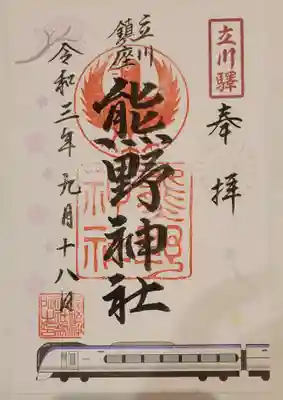 立川驛
奉拝
立川
鎮座
熊野神社
熊野
神社
令和三年九月十八日